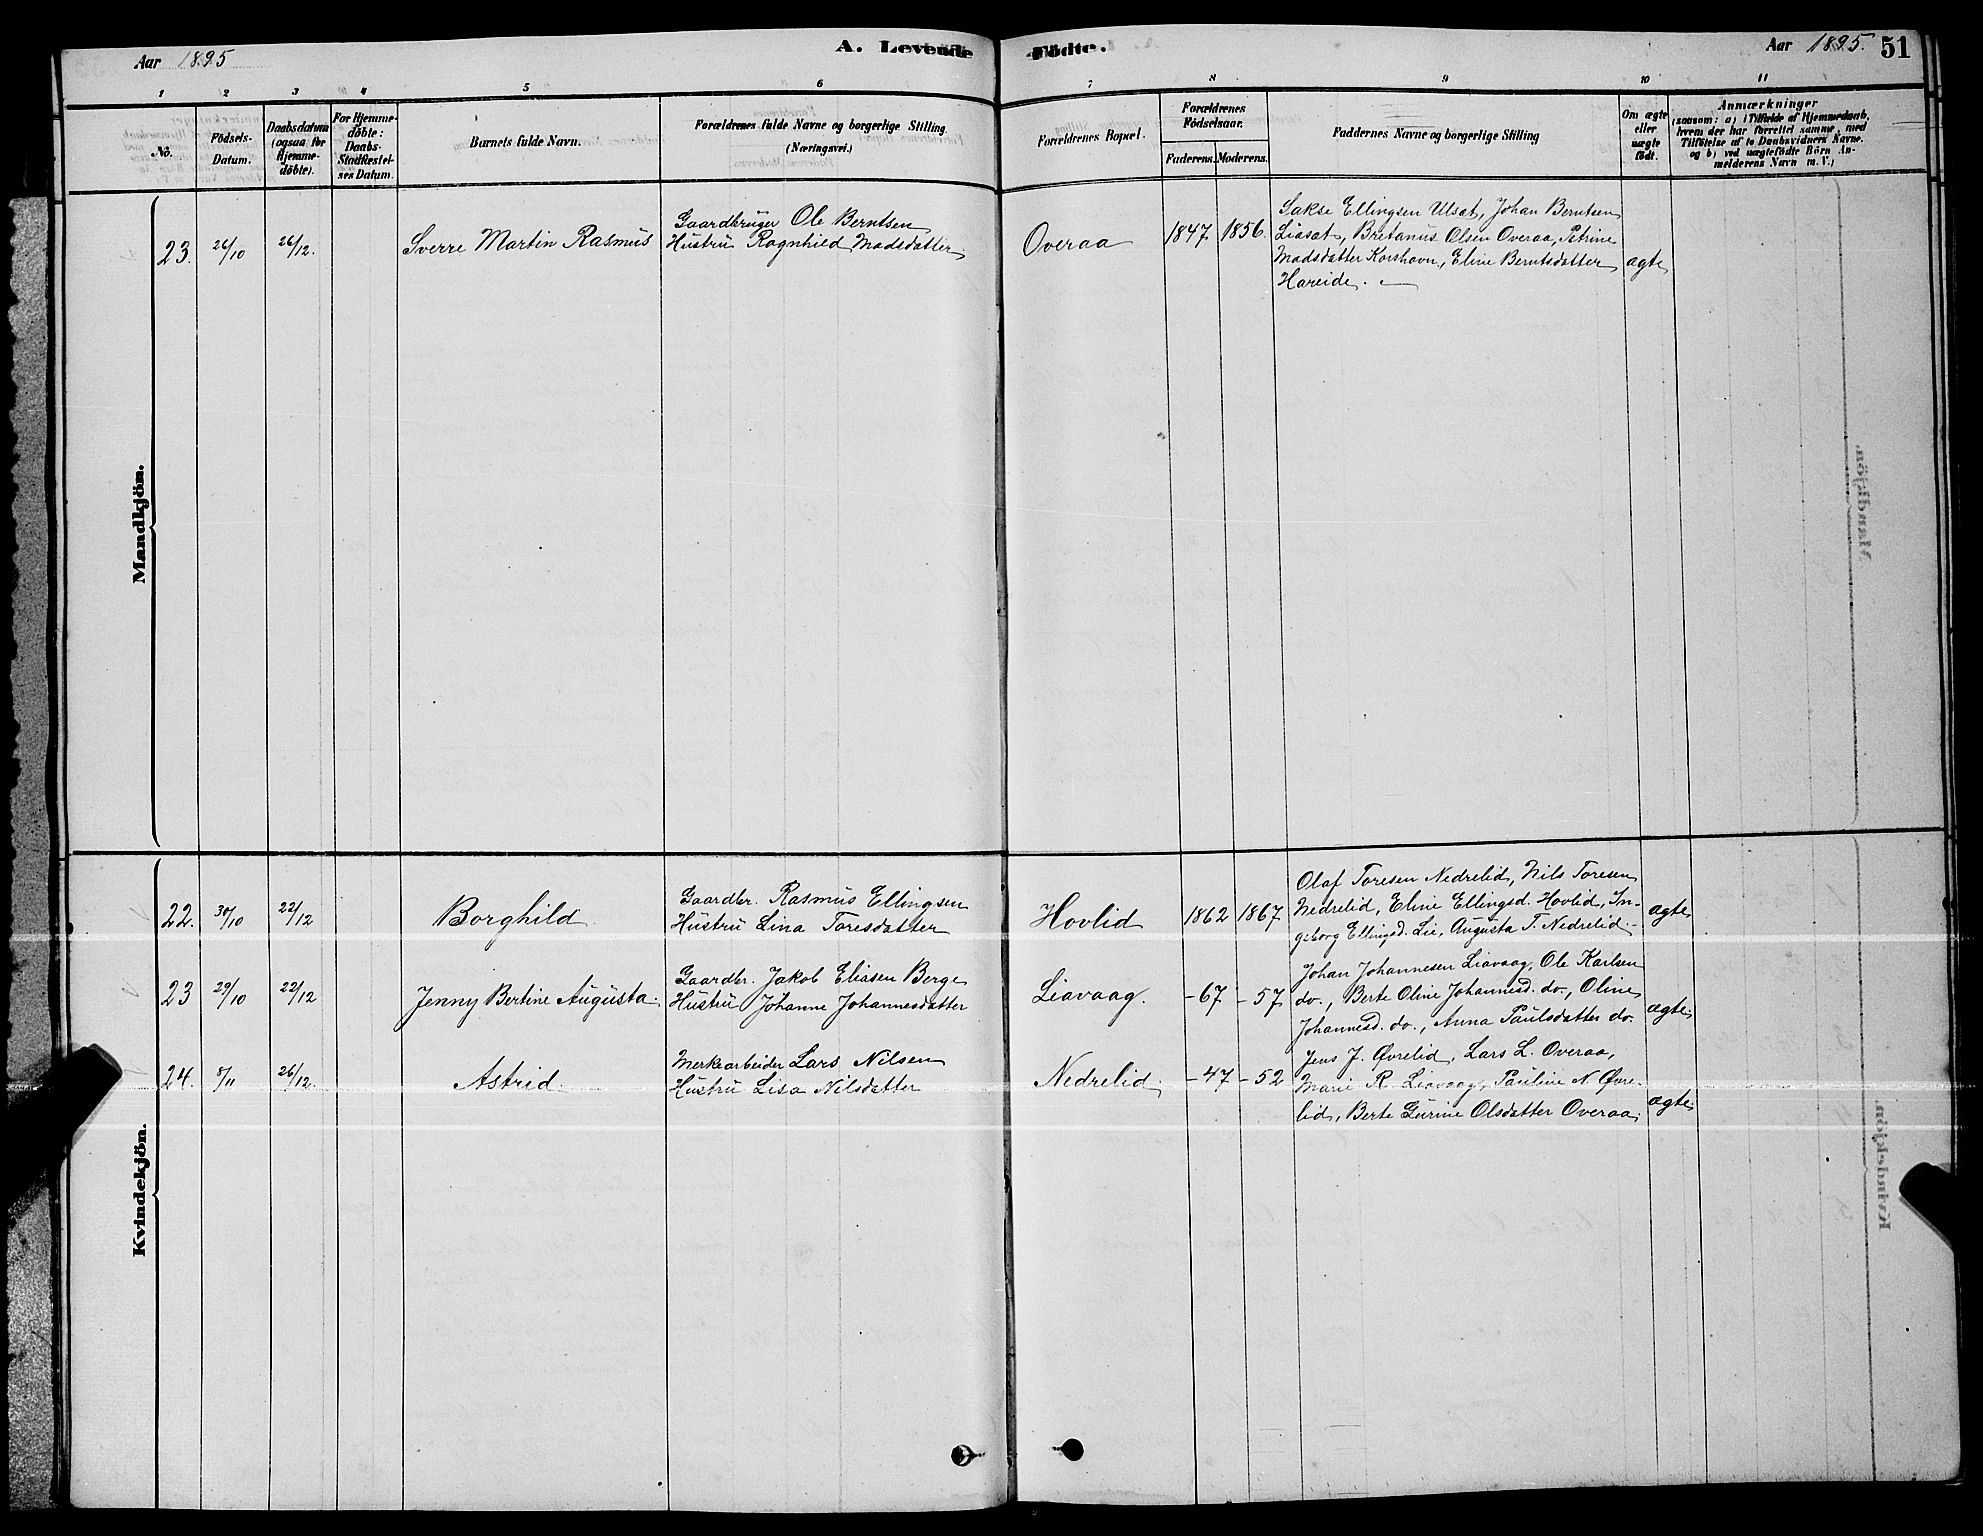 Aar 1895
A. Levende Födte.
Aar 1895. 51
1 2 3 4 5 6 7 8 9 10 11
No.
Födsels-
Datum.
Daabsdatum
(ogsaa for
Hjemme-
döbte).
For Hjemme-
döbte:
Daabs-
Stadfæstel-
ses Datum.
Barnets fulde Navn.
Forældrenes fulde Navne og borgerlige Stilling.
(Næringsvei.)
Forældrenes Bopæl.
Forældrenes
Födselsaar.
Faderens. Moderens.
Faddernes Navne og borgerlige Stilling
Om ægte
eller
uægte
født.
Anmærkninger
(saasom: a) i Tilfælde af Hjemmedaab,
hvem der har forrettet samme, med
Tilföielse af to Daabsvidners Navne.
og b) ved uægtefödte Börn An-
melderens Navn m. V.)
Mandkjön.
23. 26/10 26/12. Sverre Martin Rasmus
Gaardbruger Ole Berntsen
Hustru Ragnhild Madsdatter
Overaa 1847 1856.
Sakse Ellingsen Ulsat, Johan Berntsen
Liasat, Bretanus Olsen Overaa, Petrine
Madsdatter Korshavn, Eline Berntsdatter
Hareide.
ægte
Kvindekjön.
22. 30/10 22/12 Borghild
Gaardbr. Rasmus Ellingsen
Hustru Lina Toresdatter
Hovlid 1862 1867
Olaf Toresen Nedrelid, Nils Toresen
Nedrelid, Eline Ellingsd. Hovlid, In-
geborg Ellingsd. Lie, Augusta T. Nedrelid.
ægte
23 29/10 22/12 Jenny Bertine Augusta
Gaardbr. Jakob Eliasen Berge
Hustru Johanne Johannesdatter
Liavaag. -67 -57
Johan Johannesen Liavaag, Ole Karlsen
do., Berte Oline Johannesd. do., Oline
Johannesd. do., Anna Paulsdatter do.
ægte.
24. /11 26/12. Astrid.
Merkearbeider Lars Nilsen
Hustru Lisa Nilsdatter
Nedrelid -47 -52
Jens J. Øvrelid, Lars L. Overaa,
Marie R. Liavaag, Pauline N. Øvre-
lid, Berte Gurine Olsdatter Overaa.
ægte.